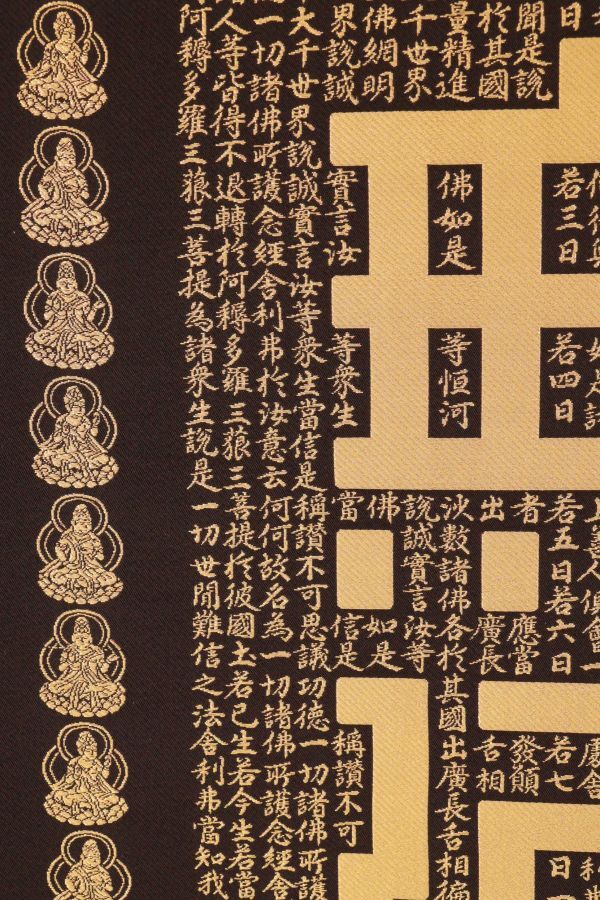 日若三日若四日若五日若六日若七日
聞是說者應當發願
於其國出廣長舌相
量精進佛如是等恒河沙數諸佛各於其國出廣長舌相徧
千世界說誠實言汝等
佛網明佛如是
界說誠實言汝等衆生當信是稱讚不可
大千世界說誠實言汝等衆生當信是稱讚不可思議功德一切諸佛所護
為一切諸佛所護念經舍利弗於汝意云何何故名為一切諸佛所護念經舍
人等皆得不退轉於阿耨多羅三藐三菩提於彼國土若已生若今生若當
阿耨多羅三藐三菩提為諸衆生說是一切世間難信之法舍利弗當知我